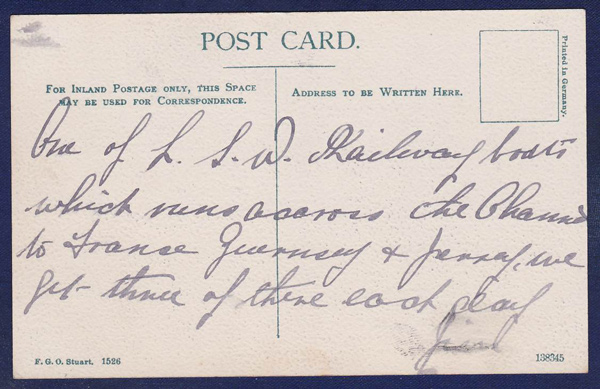 POST CARD.
FOR INLAND POSTAGE ONLY, THIS SPACE
MAY BE USED FOR CORRESPONDENCE.
ADDRESS TO BE WRITTEN HERE.
Printed in Germany.
One of L. S. W. Railway boats
which runs accross the Channel
to France Guernsey & Jersey, we
get three of there each day
F. G. O. Stuart. 1526
138345